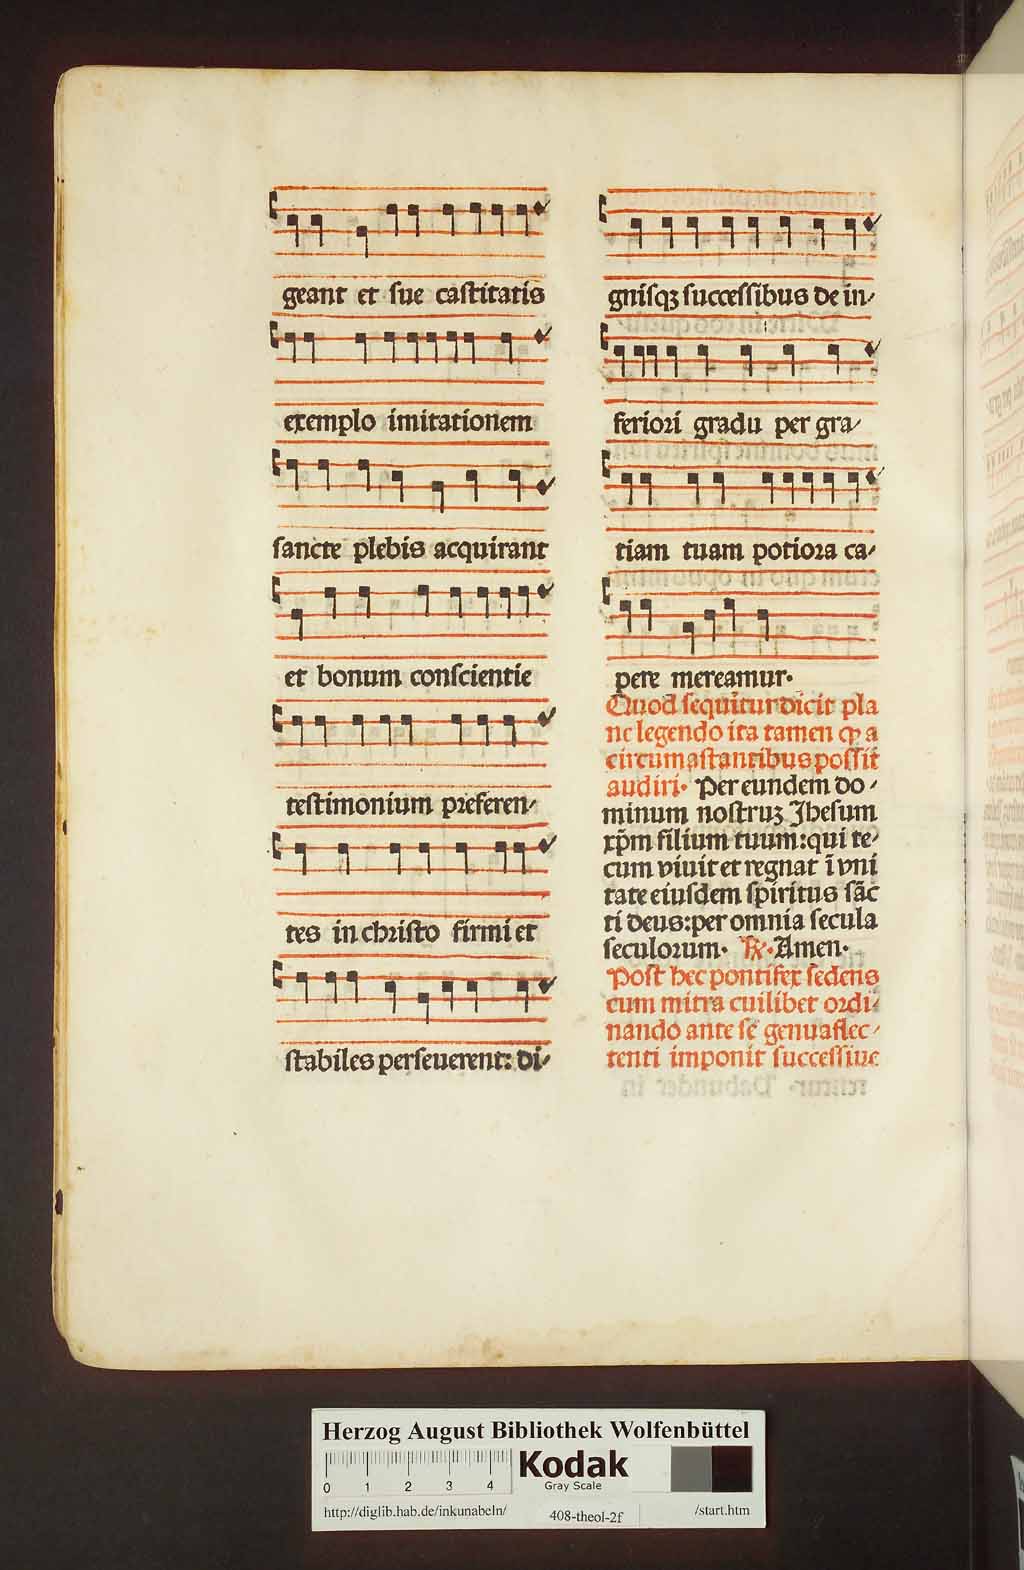 geant et sue castitatis
exemplo imitationem
sancte plebis acquirant
et bonum conscientie
testimonium preferen-
tes in christo firmi et
stabiles perseuerent: di-
gnisqꝫ successibus de in-
feriori gradu per gra-
tiam tuam potiora ca-
pere mereamur.
Quod sequitur dicit pla
ne legendo ita tamen ꝙ a
circumastantibus possit
audiri. Per eundem do-
minum nostruꝫ Jhesum
xp̄m filium tuum: qui te-
cum viuit et regnat ī vni
tate eiusdem spiritus sāc
ti deus: per omnia secula
seculorum. ℟. Amen.
Post hec pontifex sedens
cum mitra cuilibet ordi-
nando ante se genuaflec-
tenti imponit successiue
Herzog August Bibliothek Wolfenbüttel
0 1 2 3 4
Kodak
Gray Scale
http://diglib.hab.de/inkunabeln/ 408-theol-2f /start.htm